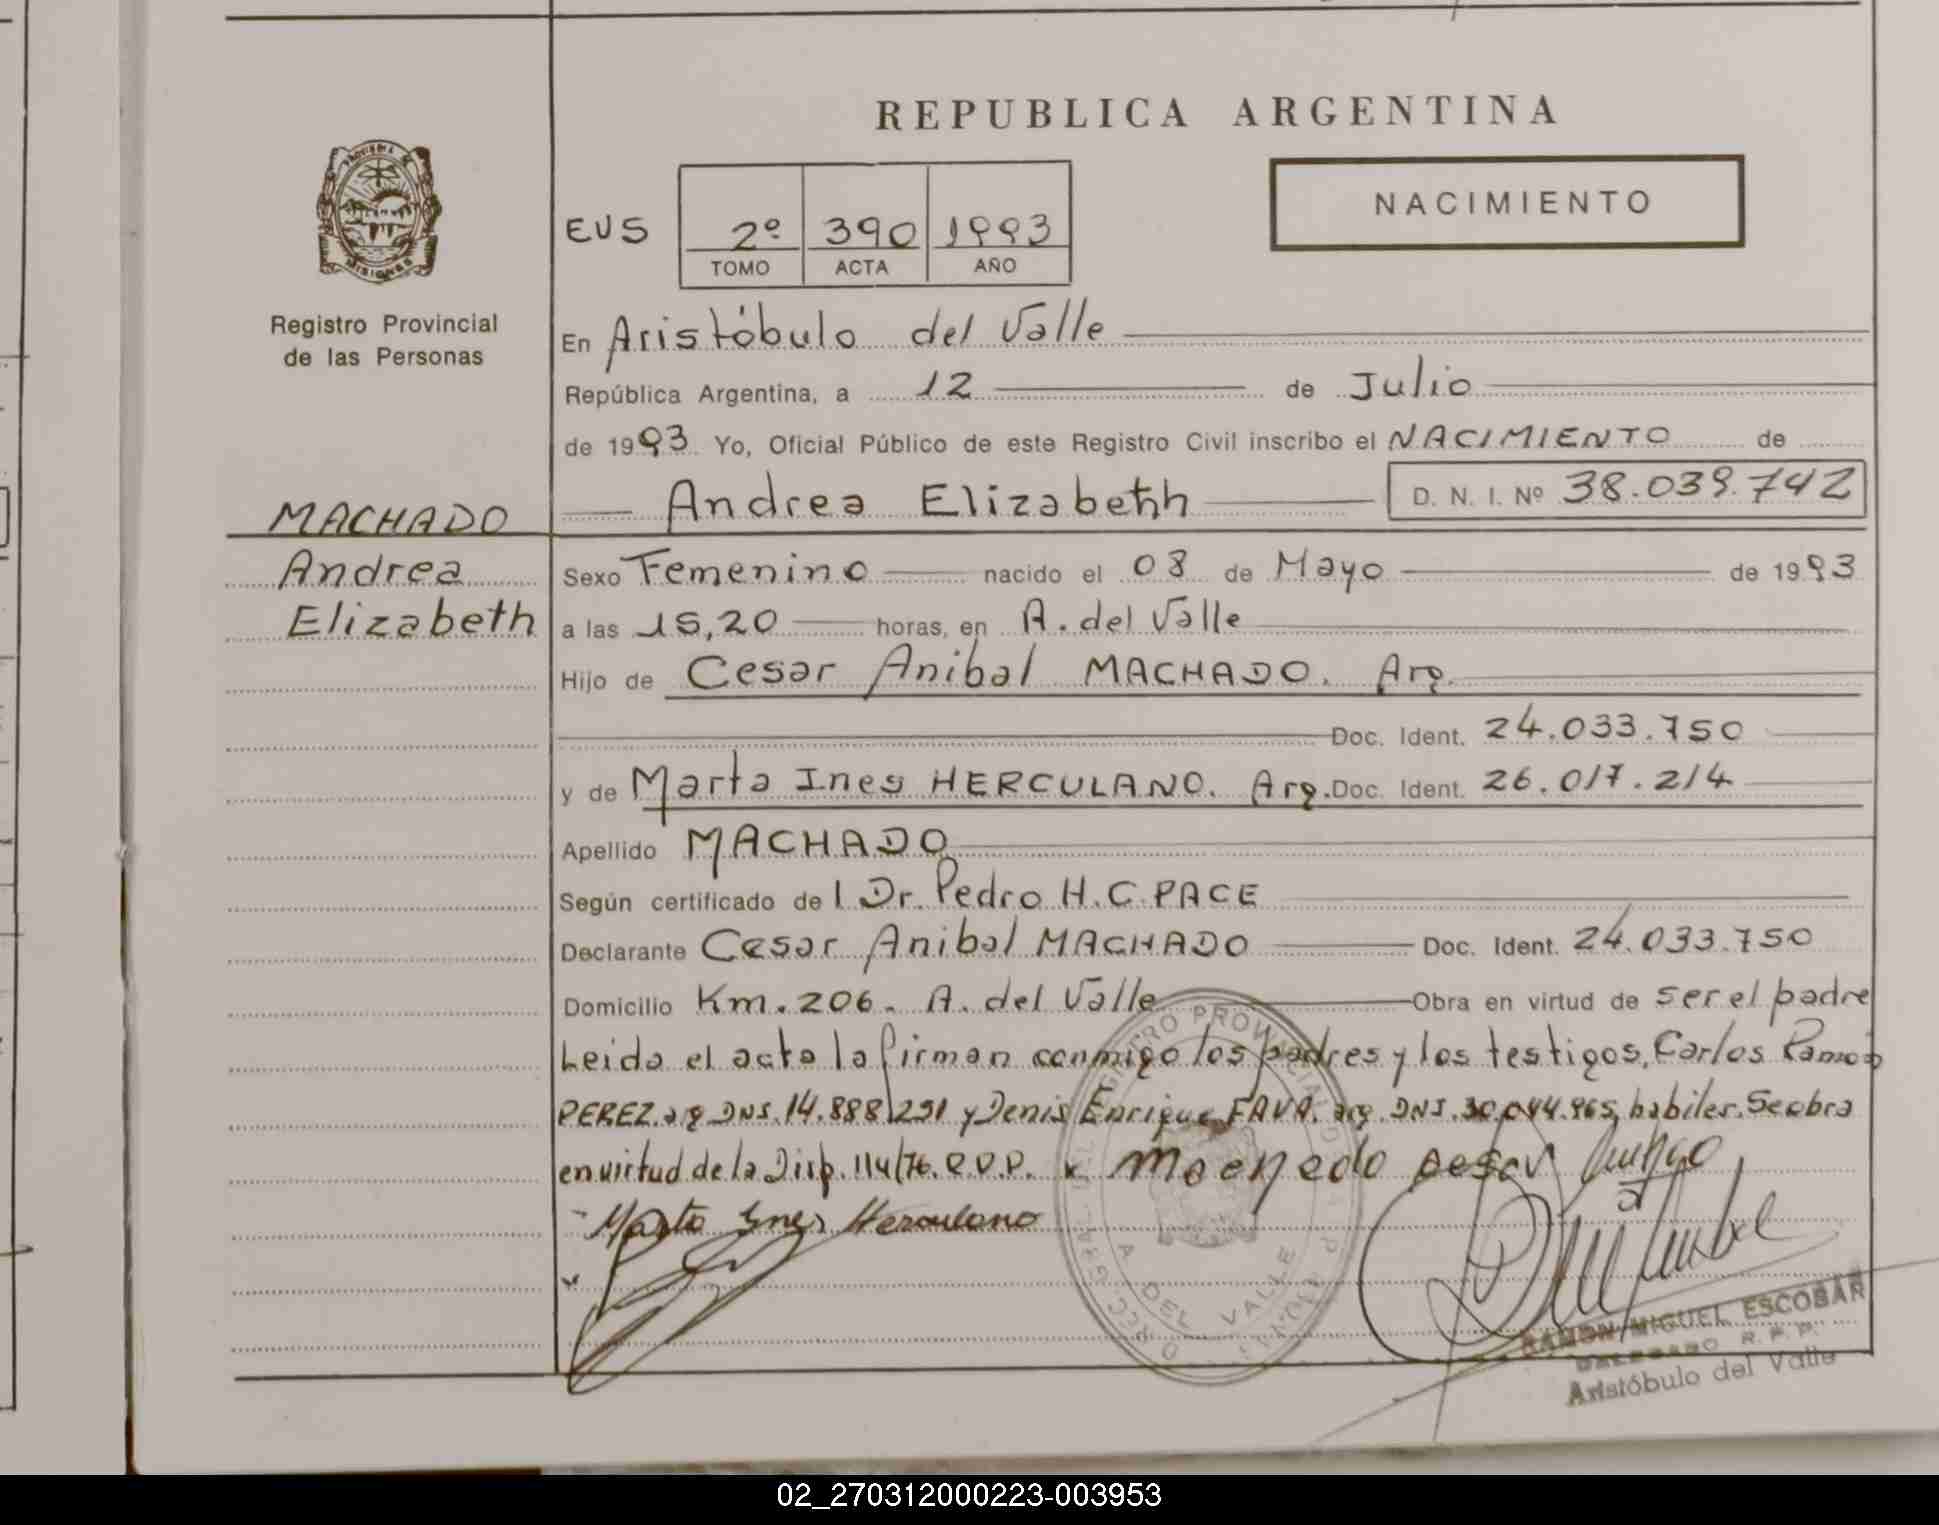 REPUBLICA ARGENTINA
NACIMIENTO
PROVINCIA DE
MISIONES
Registro Provincial
de las Personas
EUS
2º 390 1993
TOMO ACTA AÑO
En Aristóbulo del Valle
República Argentina, a 12 de Julio
de 1993 Yo, Oficial Público de este Registro Civil inscribo el NACIMIENTO de
Andrea Elizabethh D. N. I. Nº 38.039.742
MACHADO
Andrea
Elizabeth
Sexo Femenino nacido el 08 de Mayo de 1993
a las 15,20 horas, en A. del Valle
Hijo de Cesar Anibal MACHADO. Arg.
Doc. Ident. 24.033.750
y de Marta Ines HERCULANO. Arg. Doc. Ident. 26.017.214
Apellido MACHADO
Según certificado de l Dr. Pedro H. C. PACE
Declarante Cesar Anibal MACHADO Doc. Ident. 24.033.750
Domicilio Km. 206. A. del Valle Obra en virtud de ser el padre
Leida el acta la firman conmigo los padres y los testigos, Carlos Ramon
PEREZ. arg DNI. 14.888.251 y Denis Enrique FAVA. arg. DNI. 30.044.965, habiles. Se obra
en virtud de la Disp. 114/76. R.D.P.
Marta Ines Herculano
A DEL VALLE
RAMON MIGUEL ESCOBAR
DELEGADO R. P. P.
Aristóbulo del Valle
02_270312000223-003953